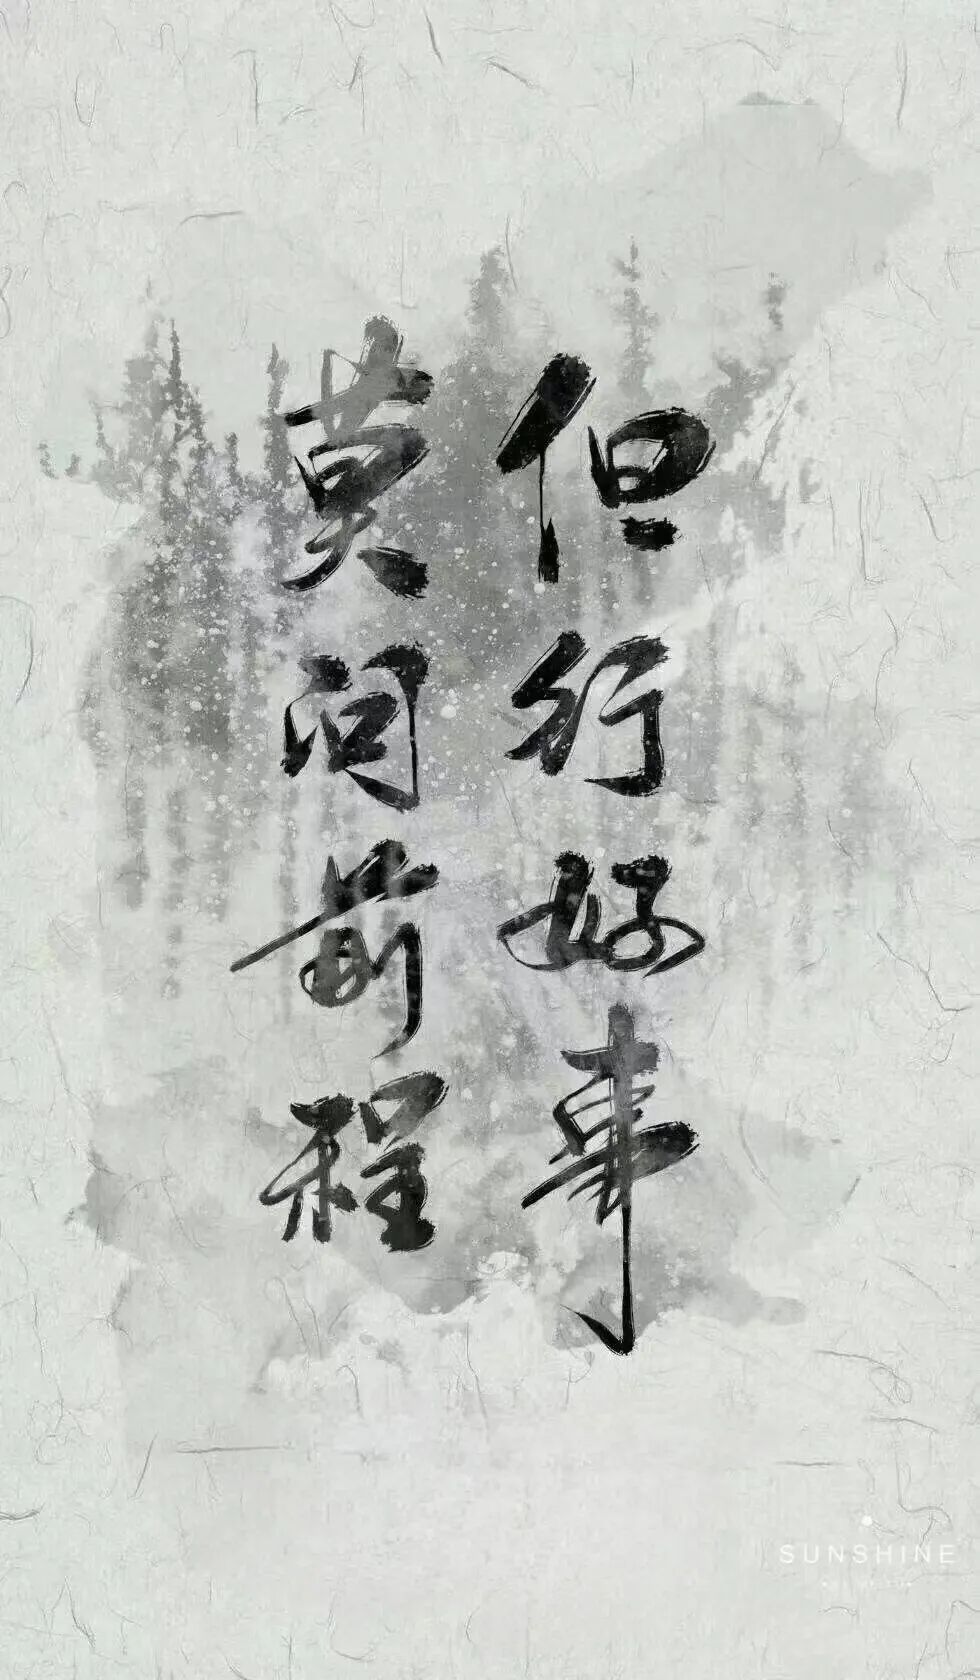 但行好事
莫问前程
SUNSHINE